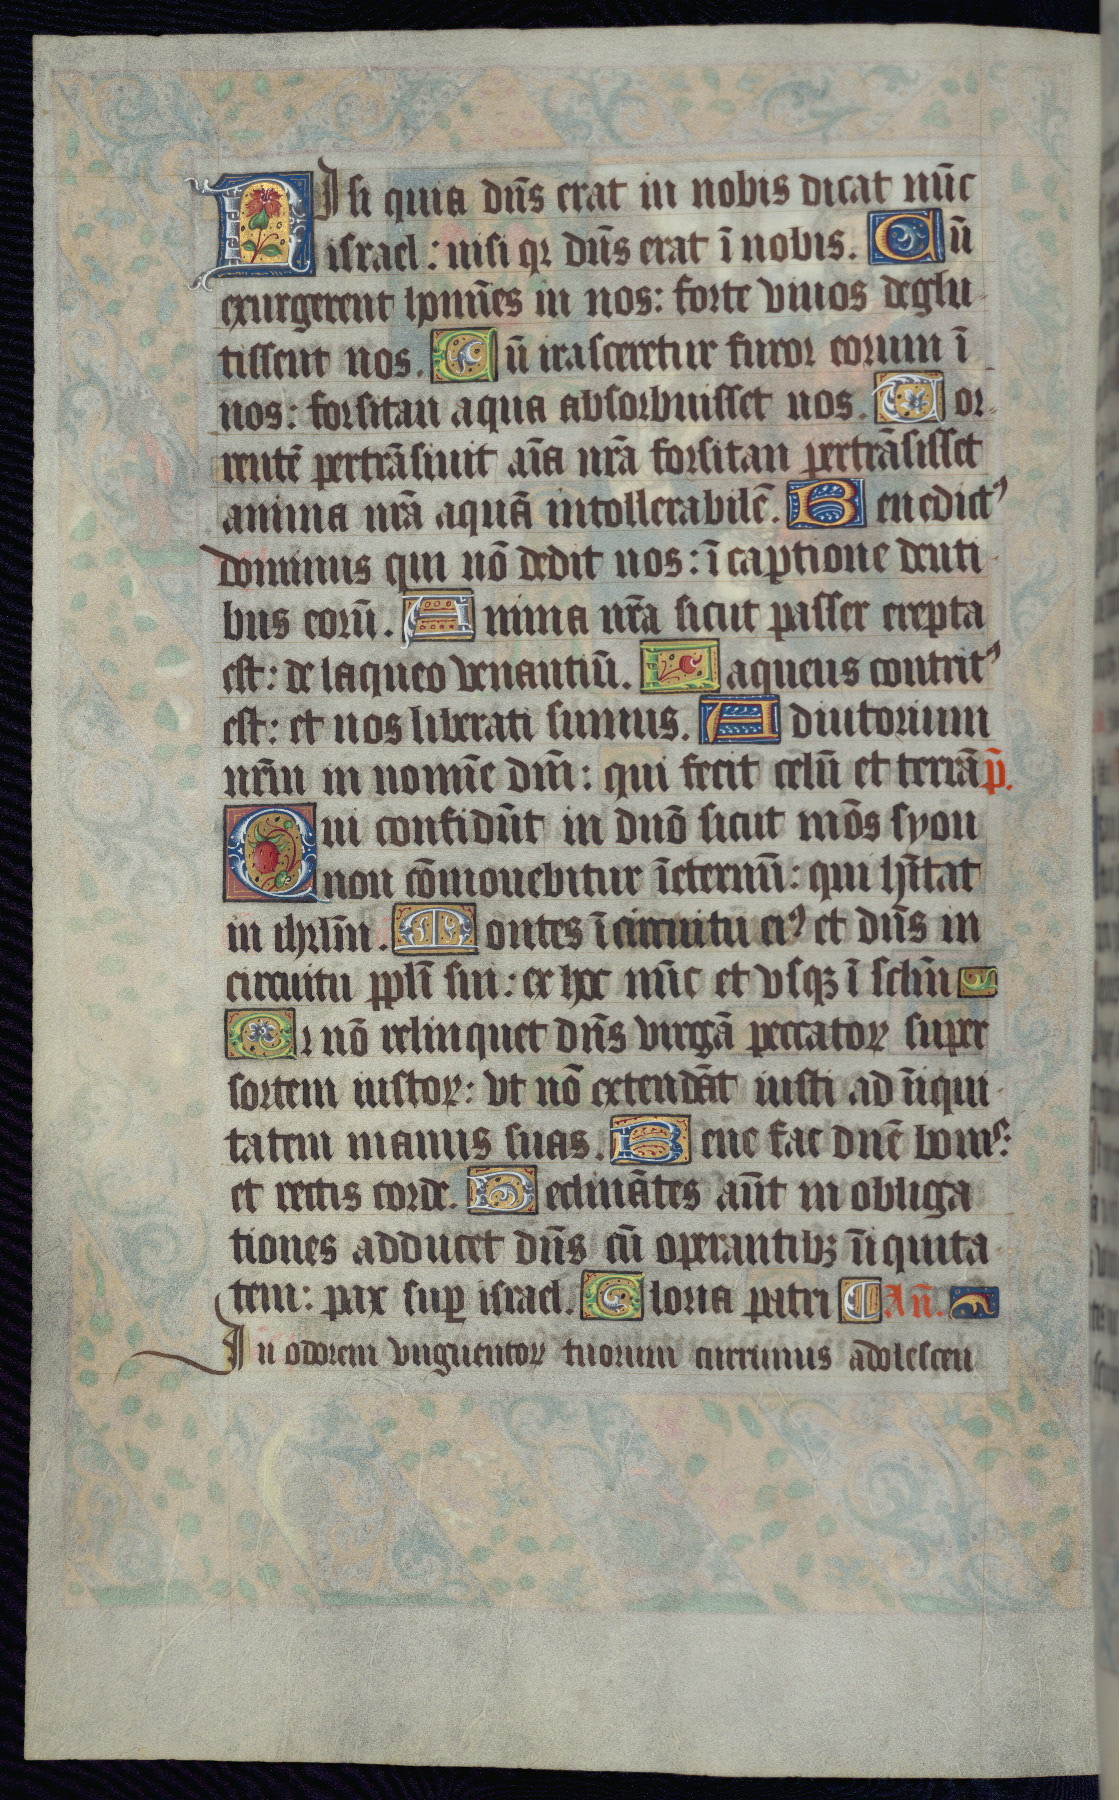 NIsi quia dn̄s erat in nobis dicat nūc
israel: nisi qꝛ dn̄s erat ī nobis. Cū
exurgerent hom̄es in nos: forte viuos deglu
tissent nos. Cū irasceretur furor eorum ī
nos: forsitan aqua absorbuisset nos. Tor
rentē pertrāsiuit aīa nr̄a forsitan pertrāsisset
anima nr̄a aquā intollerabilē. Benedictꝰ
dominus qui nō dedit nos: ī captione denti
bus eorū. Anima nr̄a sicut passer erepta
est: de laqueo venantiū. Laqueus contritꝰ
est: et nos liberati sumus. Adiutorium
nr̄m in nomīe dn̄i: qui fecit celū et terrā p̄.
Qui confidūt in dn̄o sicut mōs syon
non cōmouebitur īeternū: qui hītat
in ihrlm̄. Montes ī circuitu eiꝰ et dn̄s in
circuitu ppl̄i sui: ex hoc nūc et vsqꝫ ī sclm̄
Qꝛ nō relinquet dn̄s virgā peccatoꝝ super
sortem iustoꝝ: vt nō extendāt iusti ad īiqui
tatem manus suas. Benefac dn̄e bonis:
et rectis corde. Declināntes aūt in obliga
tiones adducet dn̄s cū operantibꝫ īiquita
tem: pax suꝑ israel. Gloria patri An̄.
In odorem vnguentoꝝ tuorum currimus adolescen